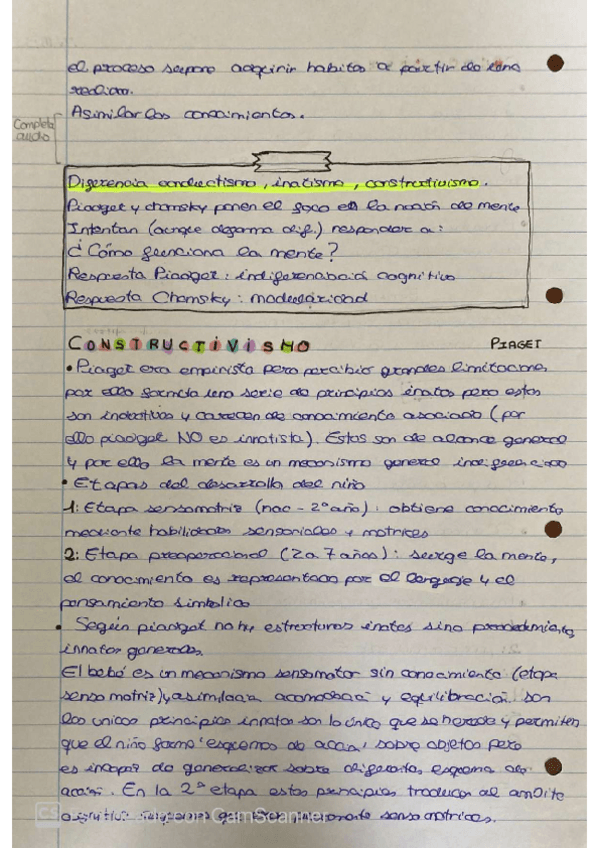 el proceso supone adquirir habitos a partir de una
realidad.
Asimilar los conocimientos.
Completa
audio
Diferencia conductismo, inatismo, constructivismo.
Piadget y chomsky ponen el foco en la noción de mente
Intentan (aunque de forma dif.) responder a:
¿Cómo funciona la mente?
Respuesta Piadget: indiferenciación cognitiva
Respuesta Chomsky: modularidad
CONSTRUCTIVISMO PIAGET
• Piadget era empirista pero percibio grandes limitaciones,
por ello formula una serie de principios inatos pero estos
son inductivos y carecen de conocimiento asociado (por
ello piadget NO es innatista). Estas son de alcance general
y por ello la mente es un mecanismo general indiferenciado
• Etapas del desarrollo del niño
1: Etapa sensomotriz (nac - 2º año): obtiene conocimiento
mediante habilidades sensoriales y motrices
2: Etapa preoperacional (2 a 7 años): surge la mente,
el conocimiento es representado por el lenguaje y el
pensamiento simbolico
• Según piadget no hay estructuras inatas sino procedimientos
innatos generales.
El bebé es un mecanismo sensomotor sin conocimiento (etapa
sensomotriz) y asimilación acomodación y equilibración son
los unicos principios innatos son lo único que se hereda y permiten
que el niño forme 'esquemas de acción' sobre objetos pero
es incapaz de generalizar sobre diferentes esquema de
acción. En la 2ª etapa estos principios traducen al ambito
cognitivo esquemas que eran puramente sensomotrices.
CS Escaneado con CamScanner